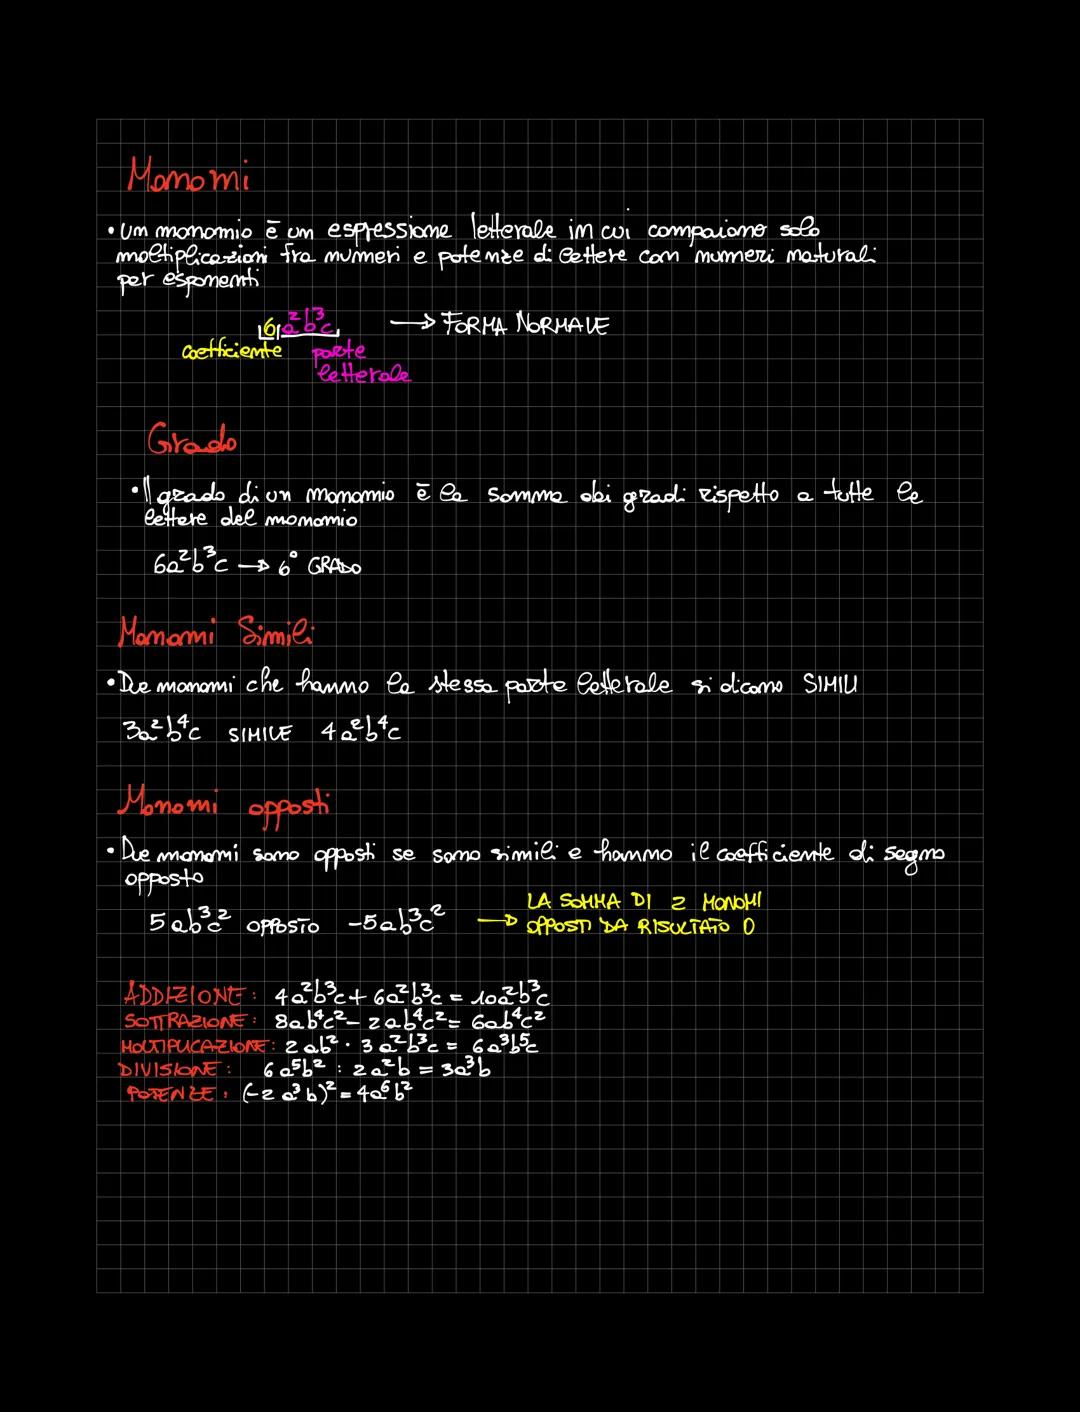 Monomi
• Un monomio è un espressione letterale in cui compaiono solo
moltiplicazioni fra numeri e potenze di lettere con numeri naturali
per esponenti
6a²b³c → FORMA NORMALE
coefficiente parte
letterale
Grado
• Il grado di un monomio è la somma dei gradi rispetto a tutte le
lettere del monomio
6a²b³c → 6° GRADO
Monomi Simili
• Due monomi che hanno la stessa parte letterale si dicono SIMILI
3a²b⁴c SIMILE 4a²b⁴c
Monomi opposti
• Due monomi sono opposti se sono simili e hanno il coefficiente di segno
opposto
5ab³c² OPPOSTO -5ab³c² → LA SOMMA DI 2 MONOMI
OPPOSTI DA RISULTATO 0
ADDIZIONE: 4a²b³c + 6a²b³c = 10a²b³c
SOTTRAZIONE: 8ab⁴c² - 2ab⁴c² = 6ab⁴c²
MOLTIPLICAZIONE: 2ab² · 3a²b³c = 6a³b⁵c
DIVISIONE: 6a⁵b² : 2a²b = 3a³b
POTENZE: (-2a³b)² = 4a⁶b²